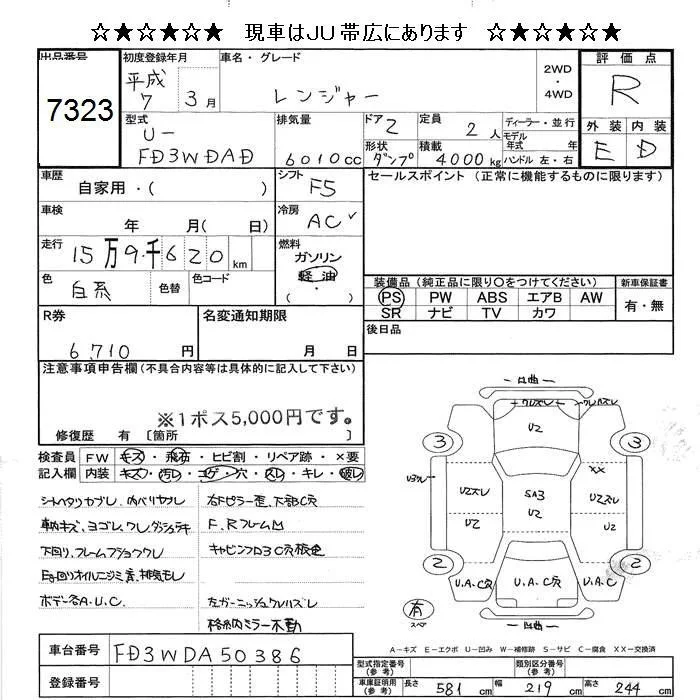 ☆★☆★☆★ 現車はJU帯広にあります ☆★☆★☆★
出品番号
7323
初度登録年月
平成7 3月
車名・グレード
レンジャー
2WD
・
4WD
評価点
R
外装 内装
E D
型式
U-
FD3WDAD
排気量
6010cc
ドア 2
定員 2人
形状 ダンプ
積載 4000kg
ディーラー・並行
モデル年式 年
ハンドル 左・右
車歴
自家用・( )
シフト F5
セールスポイント(正常に機能するものに限ります)
車検
年 月( 日)
冷房 AC✓
走行
15万9千620km
燃料
ガソリン
軽油
( ・ )
色
白系
色替
色コード
装備品(純正品に限り○をつけてください)
PS PW ABS エアB AW
SR ナビ TV カワ
新車保証書
有・無
R券
6,710円
名変通知期限
月 日
後日品
注意事項申告欄(不具合内容等は具体的に記入して下さい)
※1ポス5,000円です。
修復歴 有 〔箇所
検査員記入欄
FW キズ・飛石・ヒビ割・リペア跡・×要
内装 キズ・汚レ・コゲ・穴・スレ・キレ・破レ
シートヘタリカブレ、内バリヤブレ
車内キズ、ヨゴレ、ワレ、ダッシュラテキ
下回り、フレームブショクワレ
Eg回りオイルニジミ音、排気モレ
ボデー各A.U.C.
右Fピラー歪、下部C穴
F.RフレームM
キャビンフロアC穴板金
左ガーニッシュワレハズレ
格納ミラー不動
凹曲
ワレズレ
ワレハズレ
U2
3
3
U3ワレ
××
U2ズレ
SA3
U2
U2ズレ
U2
U2
2
2
U.A.C穴
U.A.C穴
U.A.C
凹曲
有
スペア
A-キズ E-エクボ U-凹み W-補修跡 S-サビ C-腐食 XX-交換済
車台番号
FD3WDA50386
登録番号
型式指定番号(参考)
類別区分番号(参考)
車庫証明用(参考)
長さ 581cm
幅 219cm
高さ 244cm